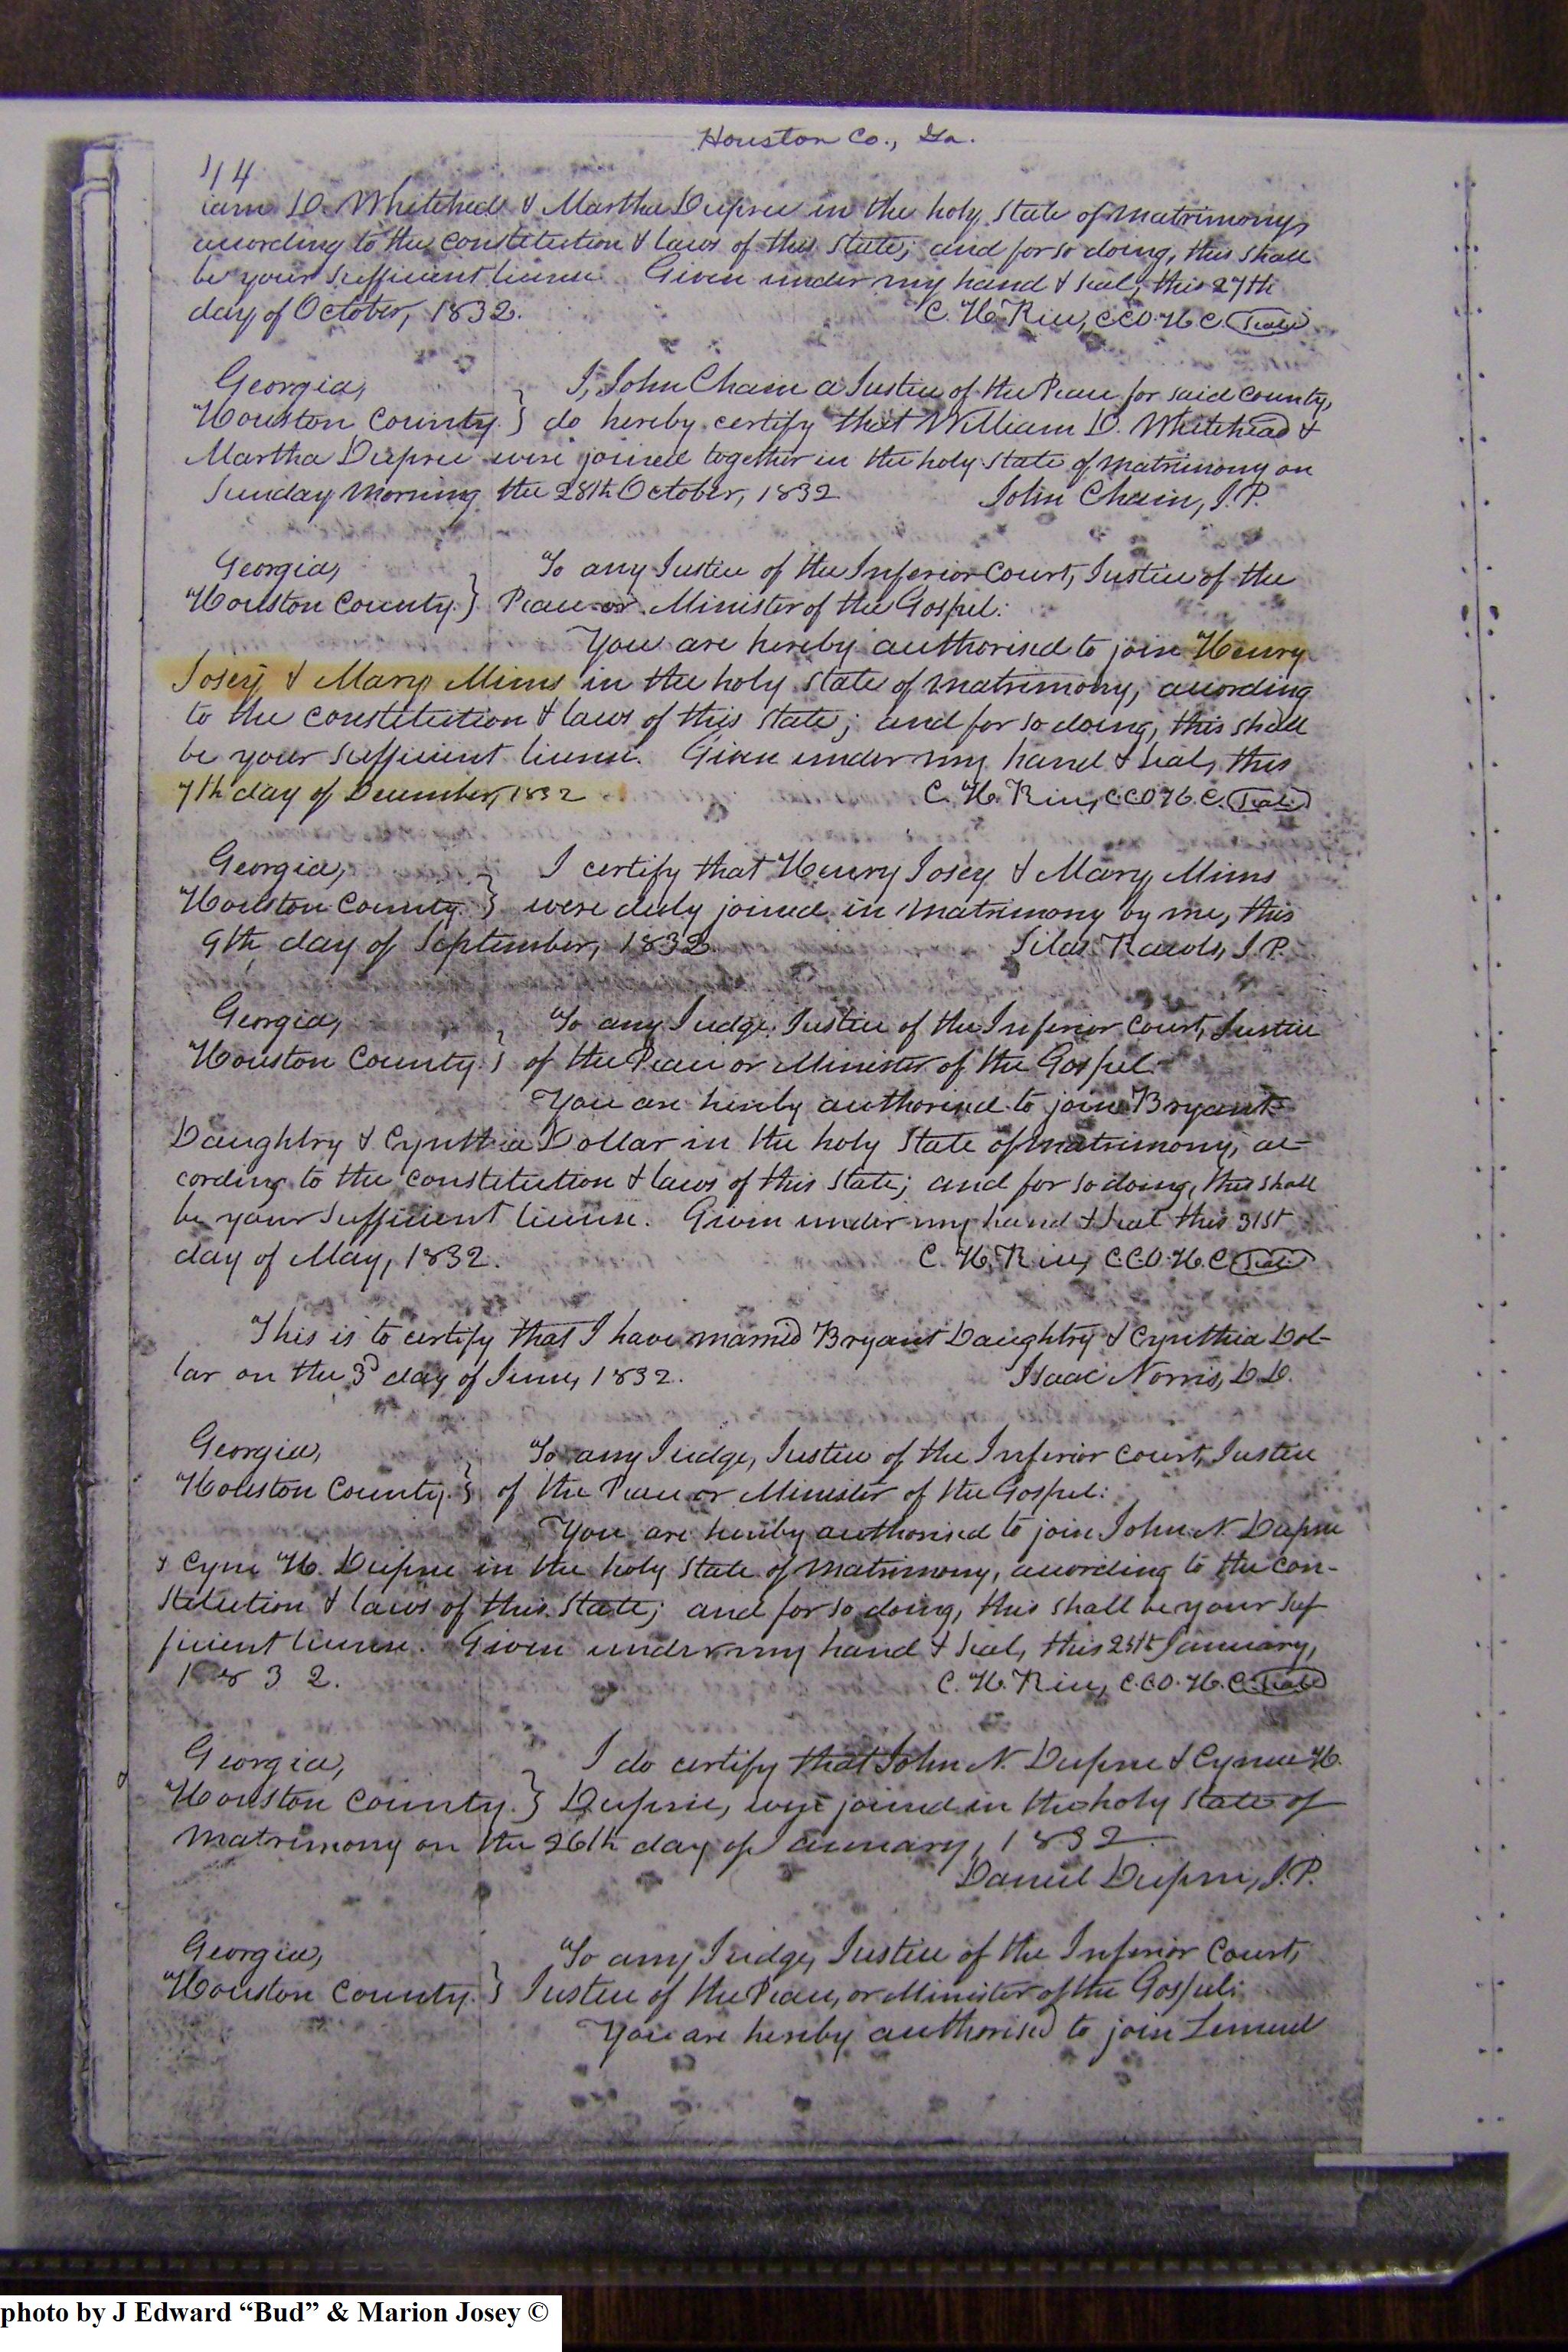 Houston Co., Ga.
44
iam D. Whitehed & Martha Dupree in the holy state of matrimony,
according to the constitution & laws of this state; and for so doing, this shall
be your sufficient license. Given under my hand & seal, this 27th
day of October, 1832. C. H. Rice, C.C.O.H.C. (Seal)
Georgia, I, John Chain a Justice of the Peace for said county,
Houston County. } do hereby certify that William D. Whitehead &
Martha Dupree were joined together in the holy state of matrimony on
Sunday morning the 28th October, 1832 John Chain, J.P.
Georgia, To any Justice of the Inferior Court, Justice of the
Houston County. } Peace or Minister of the Gospel:
You are hereby authorised to join Henry
Josey & Mary Mims in the holy state of matrimony, according
to the constitution & laws of this state; and for so doing, this shall
be your sufficient license. Given under my hand & seal, this
7th day of December, 1832 C. H. Rice, C.C.O.H.C. (Seal)
Georgia, I certify that Henry Josey & Mary Mims
Houston County. } were duly joined in matrimony by me, this
9th day of September, 1832. Silas Rawls, J.P.
Georgia, To any Judge, Justice of the Inferior Court, Justice
Houston County. } of the Peace or Minister of the Gospel.
You are hereby authorised to join Bryant
Daughtry & Cynthia Dollar in the holy state of matrimony, ac-
cording to the constitution & laws of this state; and for so doing, this shall
be your sufficient license. Given under my hand & seal this 31st
day of May, 1832. C. H. Rice, C.C.O.H.C. (Seal)
This is to certify that I have married Bryant Daughtry & Cynthia Dol-
lar on the 3d day of June, 1832. Isaac Norris, D.D.
Georgia, To any Judge, Justice of the Inferior Court, Justice
Houston County. } of the Peace or Minister of the Gospel:
You are hereby authorised to join John N. Dupree
& H. Dupree in the holy state of matrimony, according to the con-
stitution & laws of this state; and for so doing, this shall be your suf
ficient license. Given under my hand & seal, this 25th January,
1832. C. H. Rice, C.C.O.H.C. (Seal)
Georgia, I do certify that John N. Dupree & H.
Houston County. } Dupree, were joined in the holy state of
matrimony on the 26th day of January, 1832.
Daniel Dupree, J.P.
Georgia, To any Judge, Justice of the Inferior Court,
Houston County. } Justice of the Peace, or Minister of the Gospel:
You are hereby authorised to join Lemuel
photo by J Edward “Bud” & Marion Josey ©